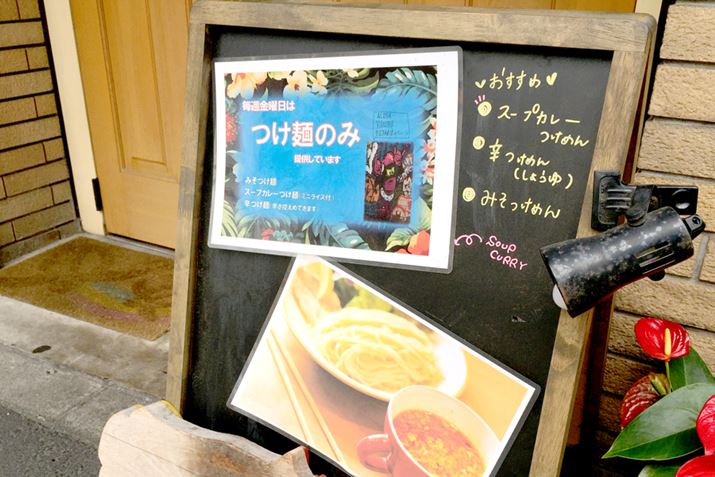 毎週金曜日は
つけ麺のみ
提供しています
みそつけ麺
スープカレーつけ麺（ミニライス付）
辛つけ麺
おすすめ
スープカレー
つけめん
辛つけめん
（しょうゆ）
みそつけめん
SOUP
CURRY